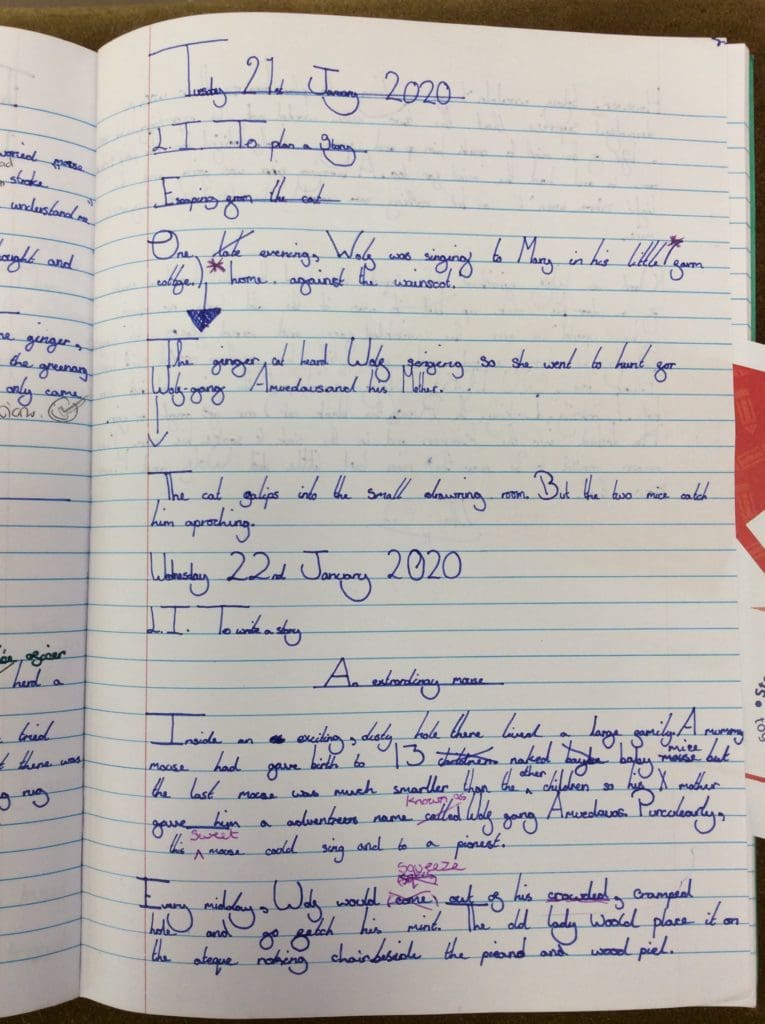 Tuesday 21st January 2020
L.I. To plan a story
Escaping from the cat
One late evening, Wolf was singing to Mary in his little farm
cottage. home. against the wainscot.
The ginger cat heard Wolf so she went to hunt for
Wolf-gang Amuedausand his Mother.
The cat galips into the small drawring room. But the two mice catch
him aproching.
Wednesday 22nd January 2020
L.I. To write a story
An extrordinary mouse
Inside an exciting, dusty hole there lived a large family. A mummy
mouse had gave birth to 13 children naked baybe babay mouse mice but
the last mouse was much smartler than the other children so his mother
gave him a adventreers name called known as Wolf gang Amuedavos. Purculearly,
this sweet mouse could sing and to a pionest.
Every midday, Wolf would (come) squeeze out of his crowded, cramped
hole and go fetch his mint. The old lady would place it on
the ateque roking chair beside the pieand and wood piel.
woried mouse
stroke
understand me
ought and
ne ginger,
the greenary
only came
officer
herd a
tried
t there was
g rug